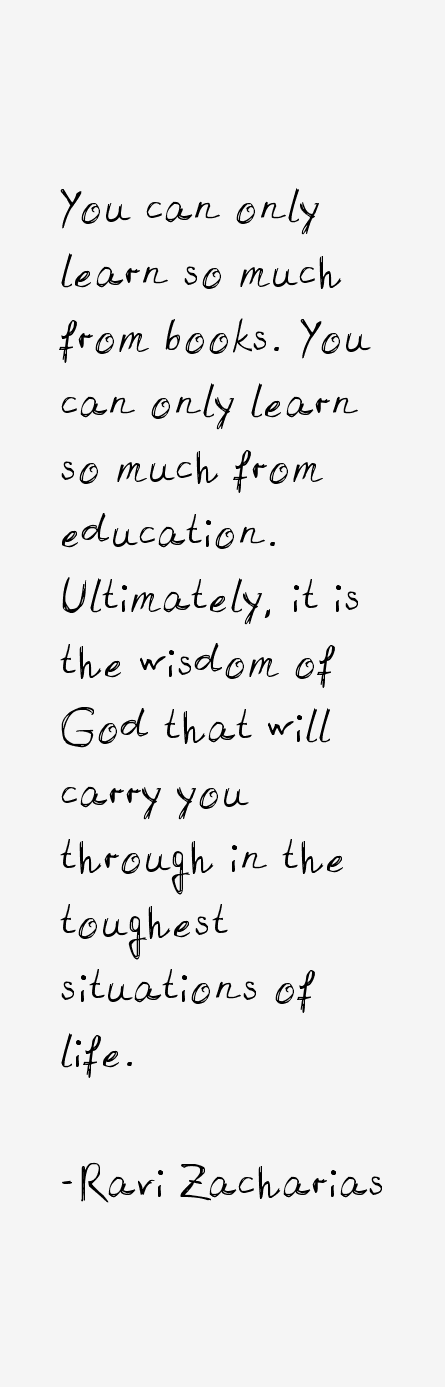 You can only
learn so much
from books. You
can only learn
so much from
education.
Ultimately, it is
the wisdom of
God that will
carry you
through in the
toughest
situations of
life.
-Ravi Zacharias